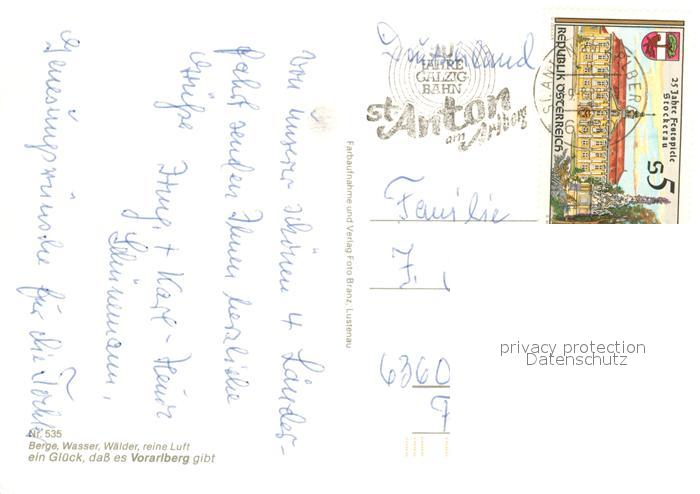 Von unserer schönen 4 Länder-
fahrt senden Ihnen herzliche
Grüße Ihre,
+ Karl-Heinz
Schünemann,
Genesungswünsche für die Tochter
Nr. 535
Berge, Wasser, Wälder, reine Luft
ein Glück, daß es Vorarlberg gibt
Farbaufnahme und Verlag Foto Branz, Lustenau
Deutschland
JAHRE
GALZIG
BAHN
St. Anton
am Arlberg
ARLBERG
REPUBLIK ÖSTERREICH
25 Jahre Festspiele
Stockerau
S 5
Familie
F.
6360
F
privacy protection
Datenschutz